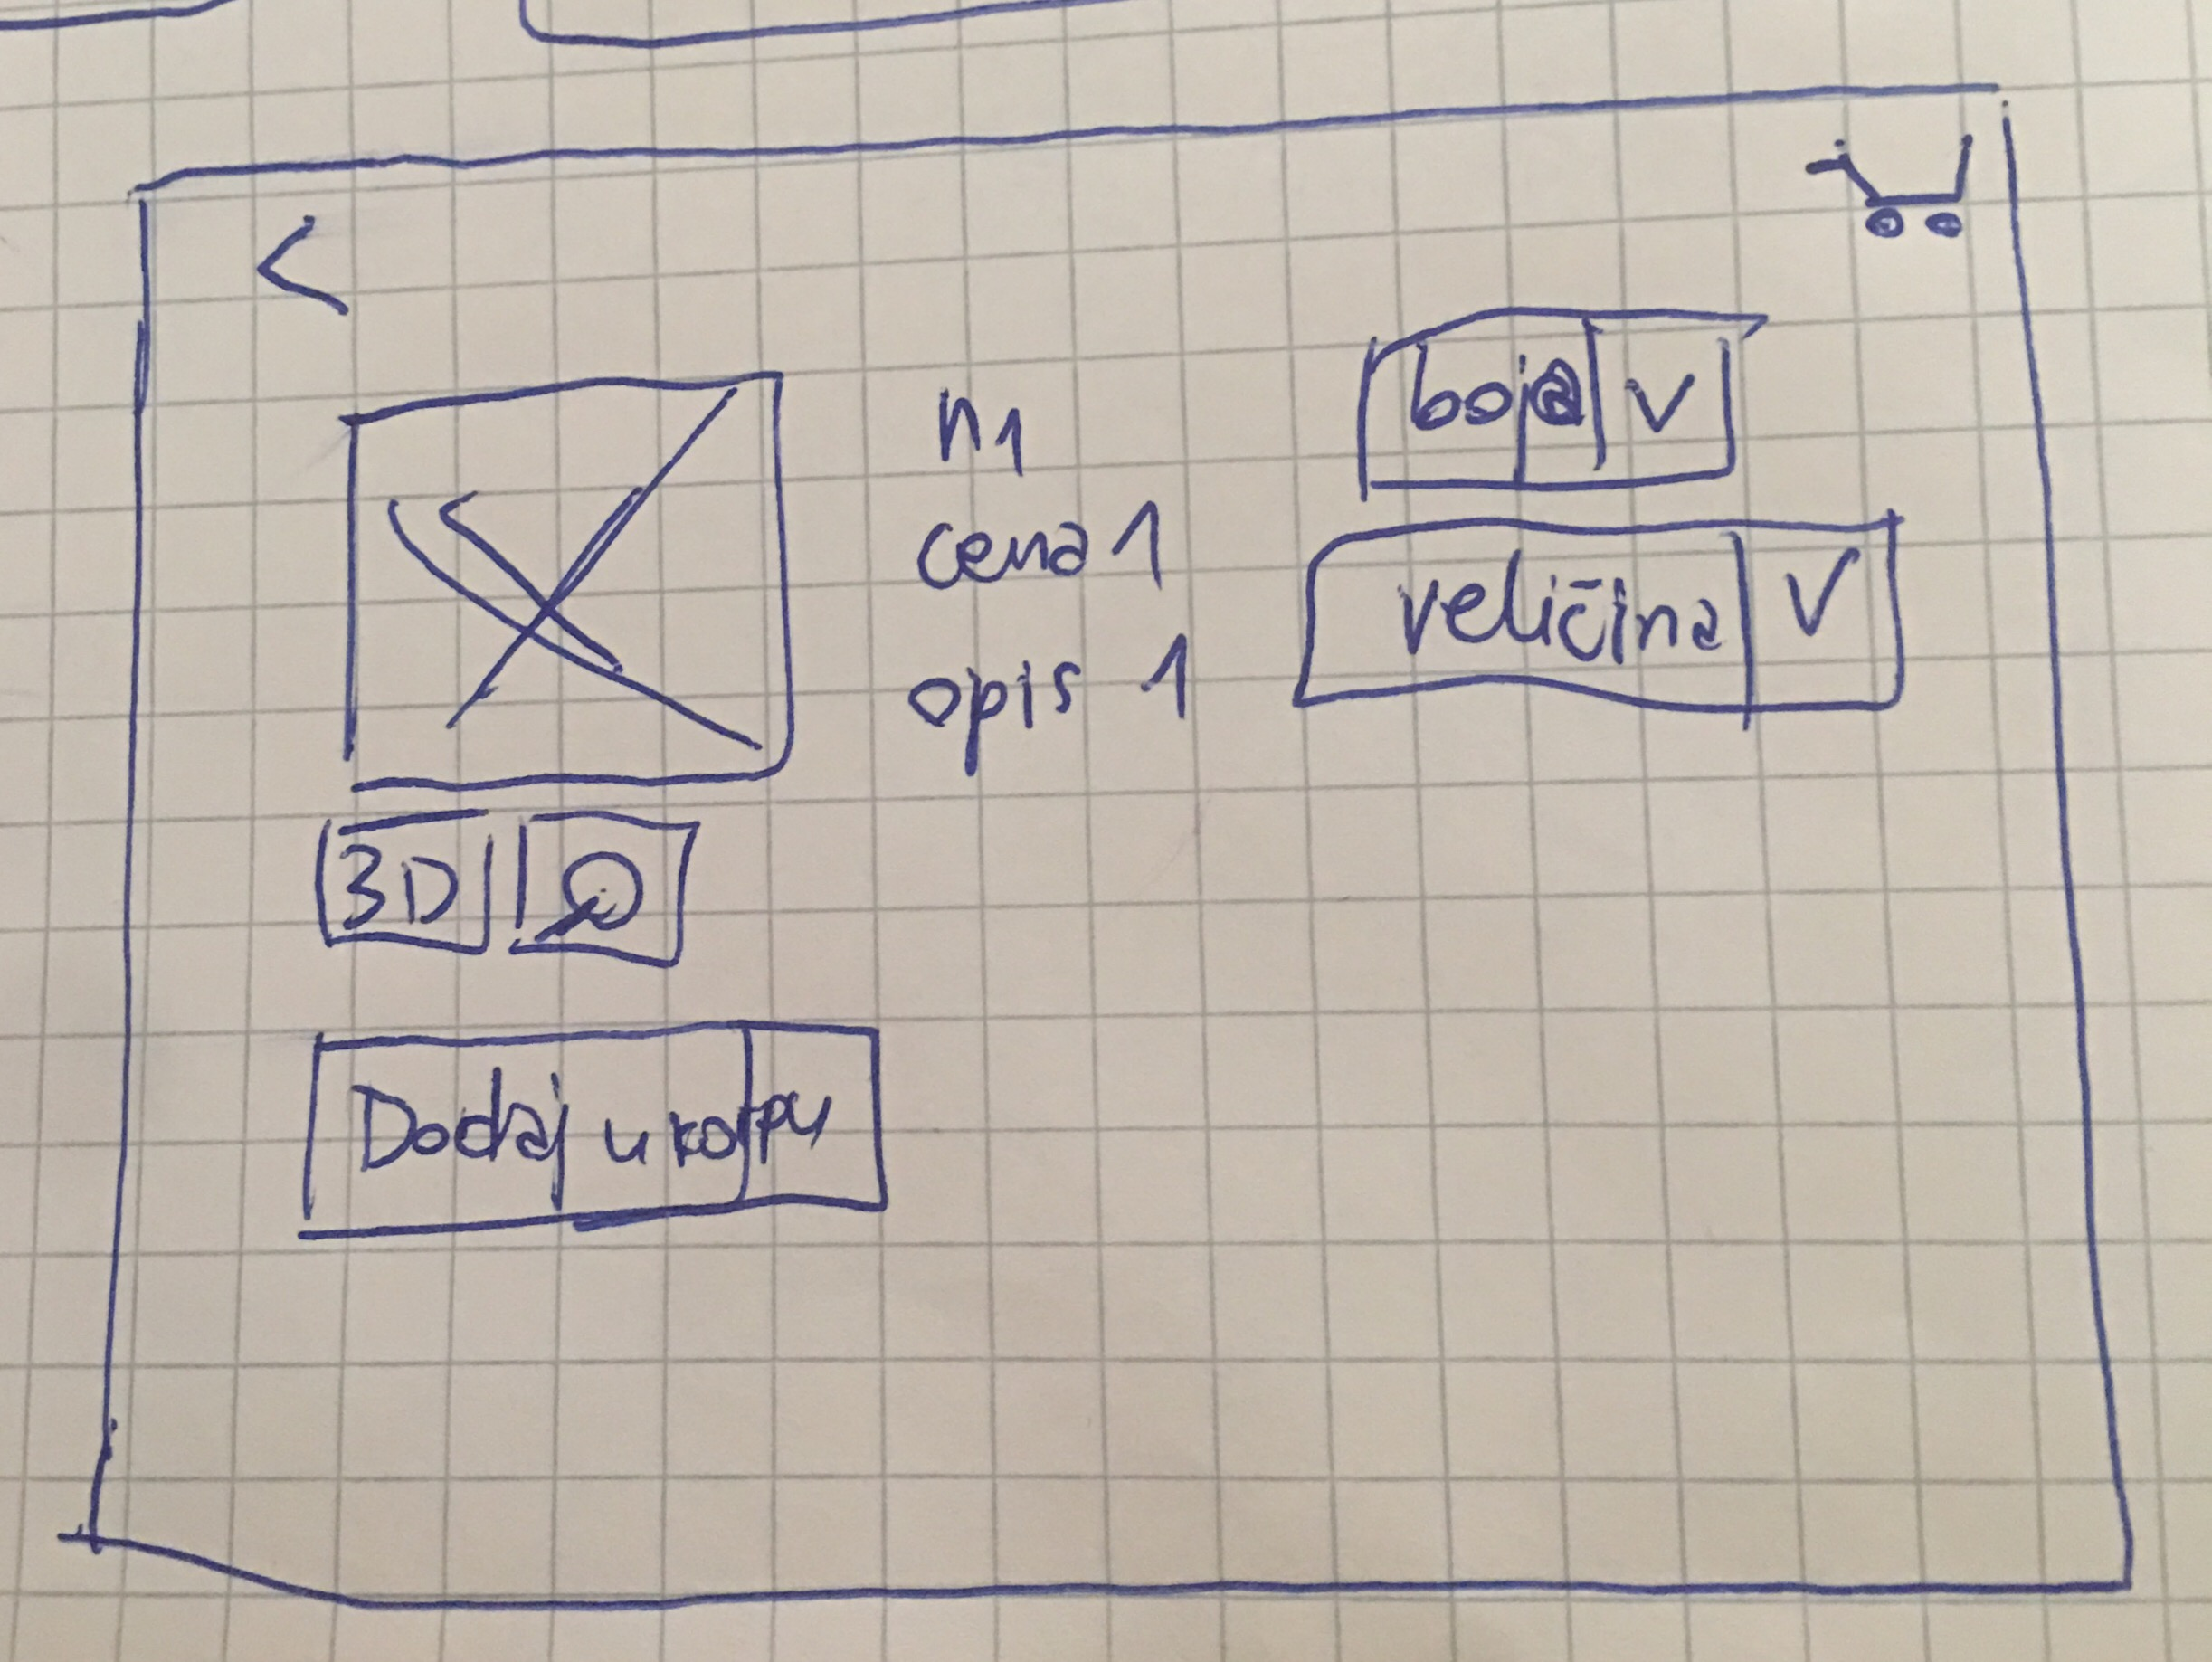 n1
cena 1
opis 1
boja V
veličina V
3D
Dodaj u korpu